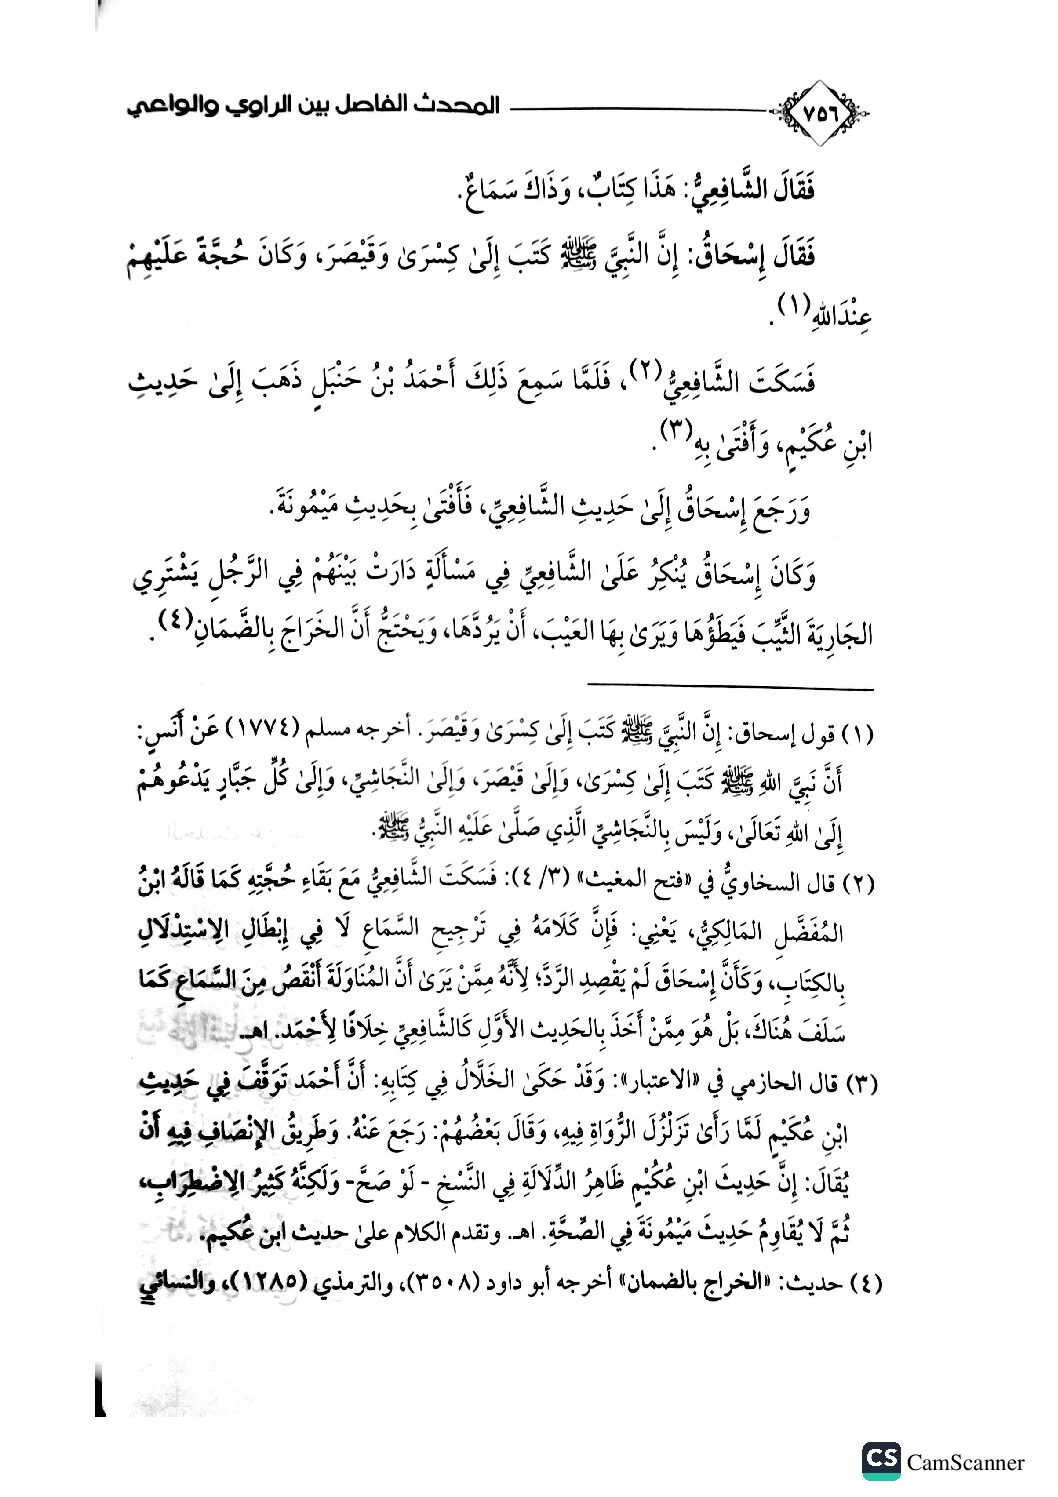 المحدث الفاصل بين الراوي والواعي ٧٥٦
فَقَالَ الشَّافِعِيُّ: هَذَا كِتَابٌ، وَذَاكَ سَمَاعٌ.
فَقَالَ إِسْحَاقُ: إِنَّ النَّبِيَّ ﷺ كَتَبَ إِلَىٰ كِسْرَىٰ وَقَيْصَرَ، وَكَانَ حُجَّةً عَلَيْهِمْ
عِنْدَاللهِ(١).
فَسَكَتَ الشَّافِعِيُّ(٢)، فَلَمَّا سَمِعَ ذَلِكَ أَحْمَدُ بْنُ حَنْبَلٍ ذَهَبَ إِلَىٰ حَدِيثِ
ابْنِ عُكَيْمٍ، وَأَفْتَىٰ بِهِ(٣).
وَرَجَعَ إِسْحَاقُ إِلَىٰ حَدِيثِ الشَّافِعِيِّ، فَأَفْتَىٰ بِحَدِيثِ مَيْمُونَةَ.
وَكَانَ إِسْحَاقُ يُنْكِرُ عَلَىٰ الشَّافِعِيِّ فِي مَسْأَلَةٍ دَارَتْ بَيْنَهُمْ فِي الرَّجُلِ يَشْتَرِي
الجَارِيَةَ الثَّيِّبَ فَيَطَؤُهَا وَيَرَىٰ بِهَا العَيْبَ، أَنْ يَرُدَّهَا، وَيَحْتَجُّ أَنَّ الخَرَاجَ بِالضَّمَانِ(٤).
(١) قول إسحاق: إِنَّ النَّبِيَّ ﷺ كَتَبَ إِلَىٰ كِسْرَىٰ وَقَيْصَرَ. أخرجه مسلم (١٧٧٤) عَنْ أَنَسٍ:
أَنَّ نَبِيَّ اللهِ ﷺ كَتَبَ إِلَىٰ كِسْرَىٰ، وَإِلَىٰ قَيْصَرَ، وَإِلَىٰ النَّجَاشِيِّ، وَإِلَىٰ كُلِّ جَبَّارٍ يَدْعُوهُمْ
إِلَىٰ اللهِ تَعَالَىٰ، وَلَيْسَ بِالنَّجَاشِيِّ الَّذِي صَلَّىٰ عَلَيْهِ النَّبِيُّ ﷺ.
(٢) قال السخاويُّ في «فتح المغيث» (٣/ ٤): فَسَكَتَ الشَّافِعِيُّ مَعَ بَقَاءِ حُجَّتِهِ كَمَا قَالَهُ ابْنُ
المُفَضَّلِ المَالِكِيُّ، يَعْنِي: فَإِنَّ كَلَامَهُ فِي تَرْجِيحِ السَّمَاعِ لَا فِي إِبْطَالِ الِاسْتِدْلَالِ
بِالكِتَابِ، وَكَأَنَّ إِسْحَاقَ لَمْ يَقْصِدِ الرَّدَّ؛ لِأَنَّهُ مِمَّنْ يَرَىٰ أَنَّ المُنَاوَلَةَ أَنْقَصُ مِنَ السَّمَاعِ كَمَا
سَلَفَ هُنَاكَ، بَلْ هُوَ مِمَّنْ أَخَذَ بِالحَدِيثِ الأَوَّلِ كَالشَّافِعِيِّ خِلَافًا لِأَحْمَد. اهـ
(٣) قال الحازمي في «الاعتبار»: وَقَدْ حَكَىٰ الخَلَّالُ فِي كِتَابِهِ: أَنَّ أَحْمَد تَوَقَّفَ فِي حَدِيثِ
ابْنِ عُكَيْمٍ لَمَّا رَأَىٰ تَزَلْزُلَ الرُّوَاةِ فِيهِ، وَقَالَ بَعْضُهُمْ: رَجَعَ عَنْهُ. وَطَرِيقُ الإِنْصَافِ فِيهِ أَنْ
يُقَالَ: إِنَّ حَدِيثَ ابْنِ عُكَيْمٍ ظَاهِرُ الدِّلَالَةِ فِي النَّسْخِ - لَوْ صَحَّ- وَلَكِنَّهُ كَثِيرُ الِاضْطِرَابِ،
ثُمَّ لَا يُقَاوِمُ حَدِيثَ مَيْمُونَةَ فِي الصِّحَّةِ. اهـ. وتقدم الكلام علىٰ حديث ابن عُكيم.
(٤) حديث: «الخراج بالضمان» أخرجه أبو داود (٣٥٠٨)، والترمذي (١٢٨٥)، والنسائي
CS CamScanner